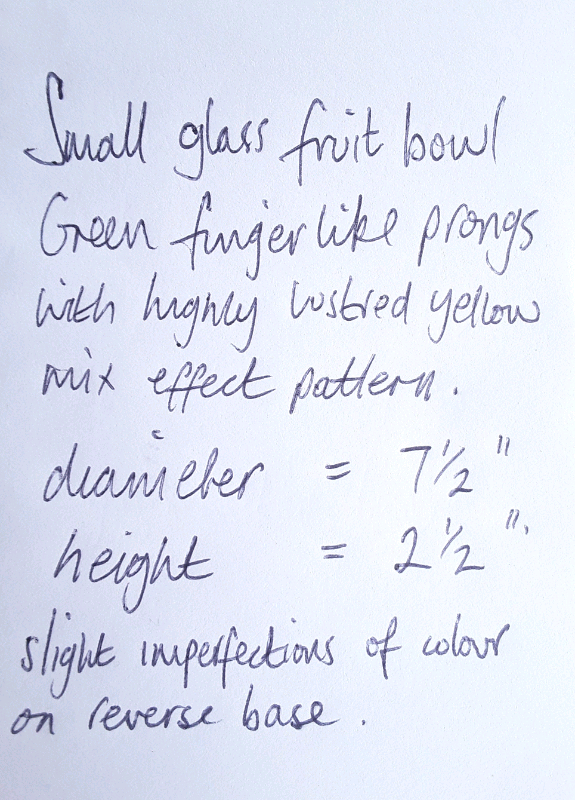 Small glass fruit bowl
Green finger like prongs
with highly lustred yellow
mix effect pattern.
diameter = 7 1/2 "
height = 2 1/2 ".
slight imperfections of colour
on reverse base.